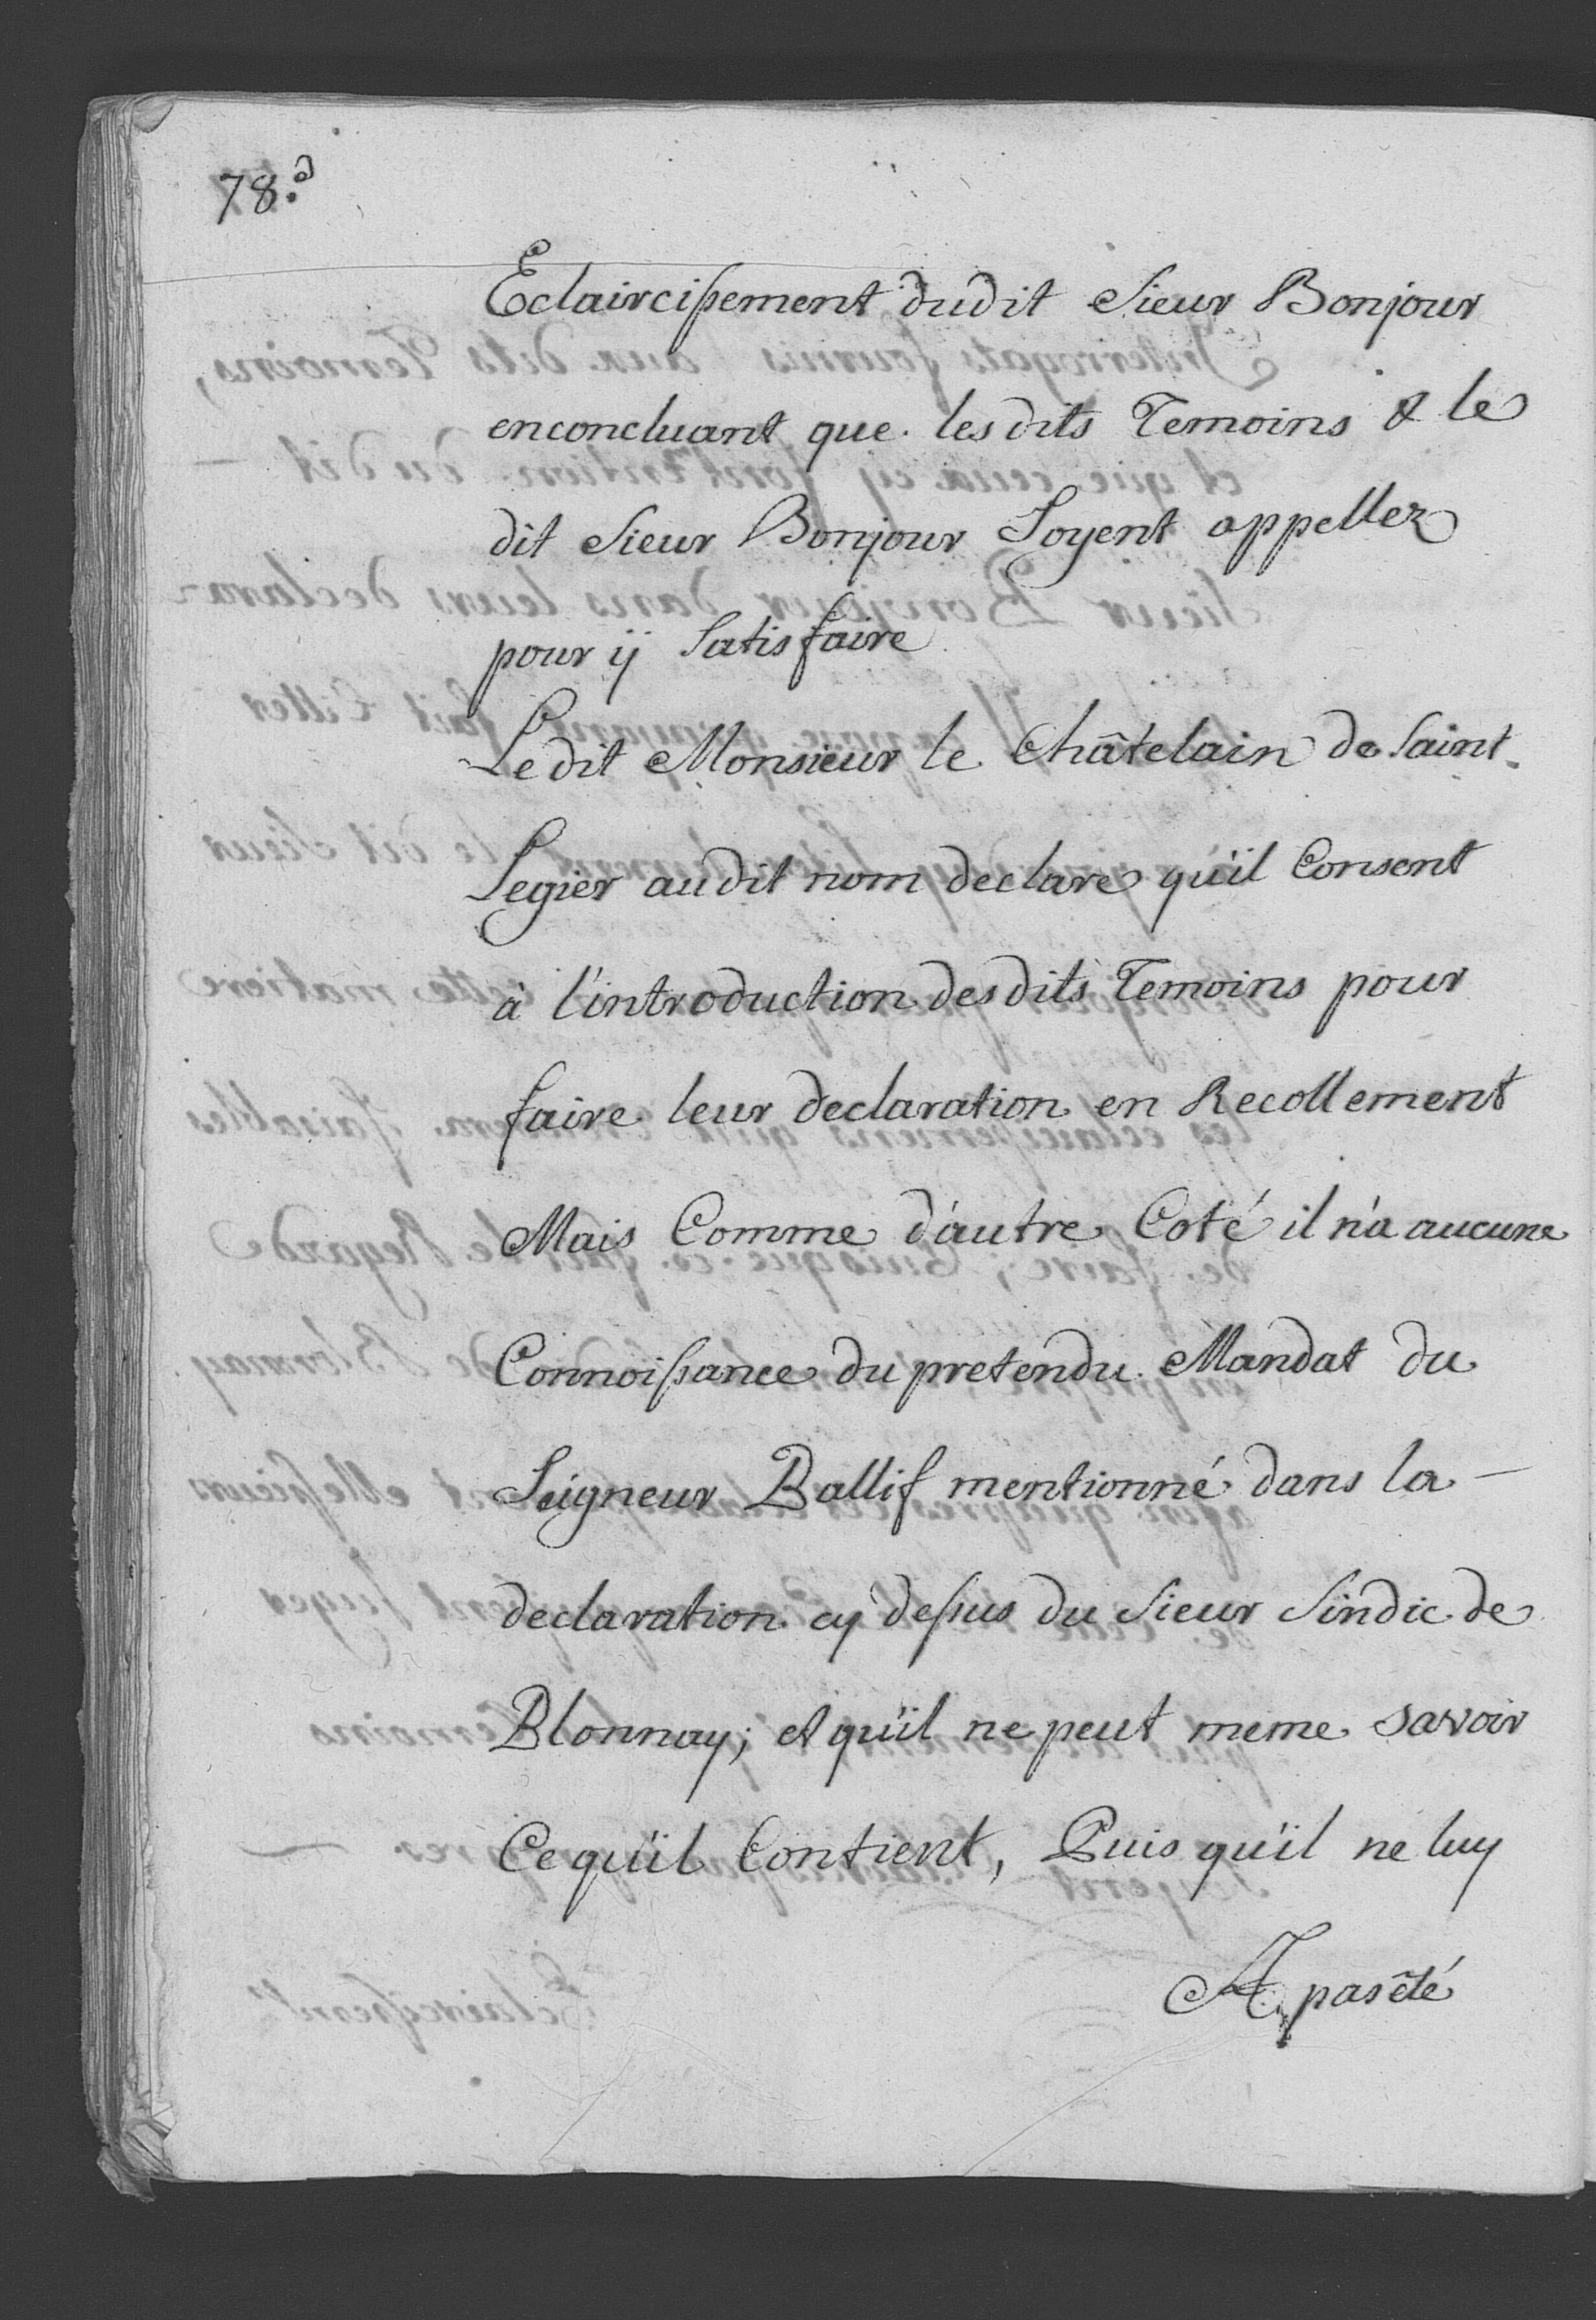 78.a
Eclaircissement dudit Sieur Bonjour
enconcluant que les dits Temoins & le
dit Sieur Bonjour Soyent appellez
pour ÿ Satisfaire
Le dit Monsieur le Châtelain de Saint
Legier au dit nom declare qu'il Consent
à l'introduction des dits Temoins pour
faire leur declaration en Recollement
Mais Comme d'autre Coté il n'a aucune
Connoissance du pretendu Mandat du
Seigneur Ballif mentionné dans la -
declaration cy dessus du Sieur Sindic de
Blonnay; et qu'il ne peut meme savoir
Ce qu'il Contient, Puis qu'il ne luy
A pas été